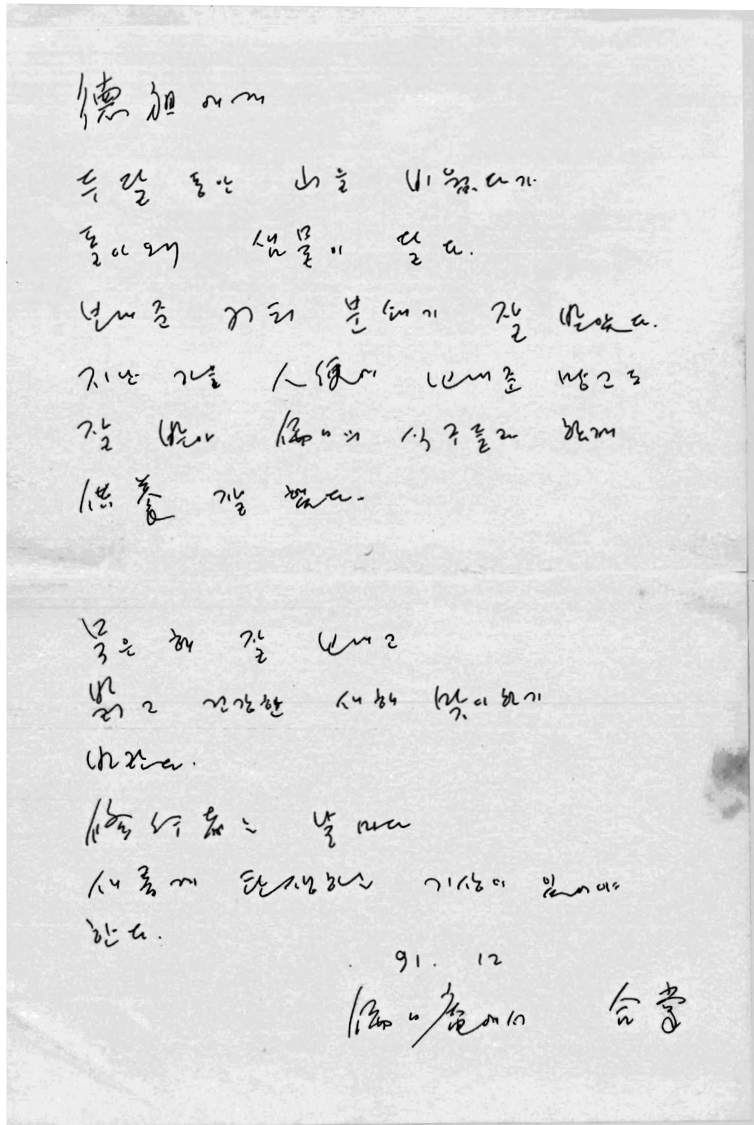 德祖에게
두달 동안 山을 비웠다가
돌아오니 샘물이 달다.
보내준 커피 분쇄기 잘 받았다.
지난 가을 人便에 보내준 망고도
잘 받아 佛日의 식구들과 함께
供養 잘 했다.
묵은 해 잘 보내고
밝고 건강한 새해 맞이하기
바란다.
修行者는 날마다
새롭게 탄생하는 기상이 있어야
한다.
91. 12
佛日庵에서 合掌